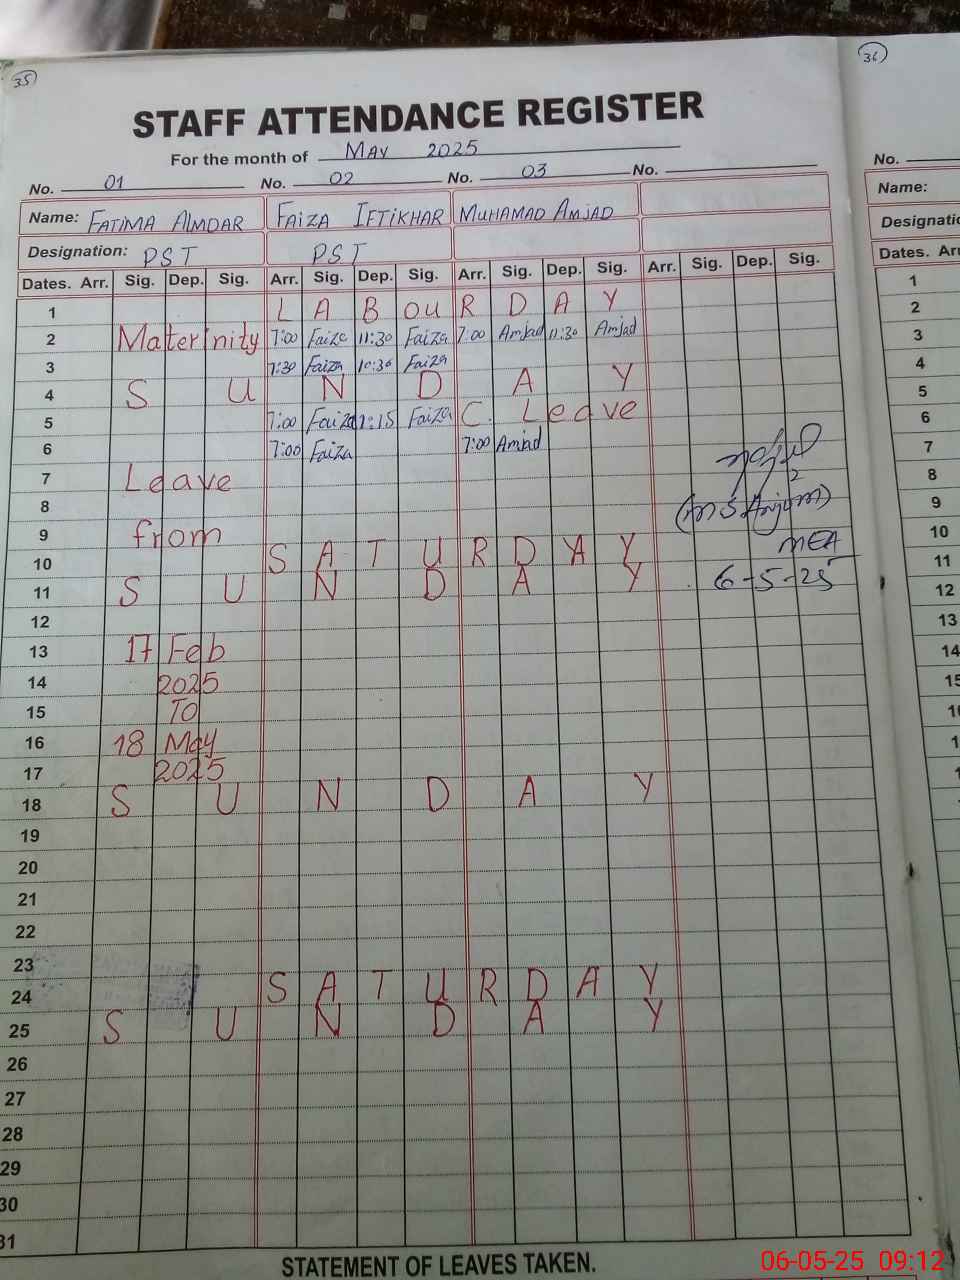 35
36
STAFF ATTENDANCE REGISTER
For the month of May 2025
No. 01 No. 02 No. 03 No.
No.
Name: FATIMA ALMDAR FAIZA IFTIKHAR MUHAMAD AMJAD
Name:
Designation: PST PST
Dates. Arr. Sig. Dep. Sig. Arr. Sig. Dep. Sig. Arr. Sig. Dep. Sig. Arr. Sig. Dep. Sig.
Dates. Arr
1 LABOUR DAY
2 Maternity 7:00 Faiza 11:30 Faiza 7:00 Amjad 11:30 Amjad
3 7:30 Faiza 10:30 Faiza
4 SUNDAY
5 7:00 Faiza 1:15 Faiza C. Leave
6 7:00 Faiza 7:00 Amjad
7 Leave
8
9 from
(MS Anjum)
10 SATURDAY
MEA
11 SUNDAY
6-5-25
12
13 17 Feb
14 2025
15 TO
16 18 May
17 2025
18 SUNDAY
19
20
21
22
23
24 SATURDAY
25 SUNDAY
26
27
28
29
30
31
1
2
3
4
5
6
7
8
9
10
11
12
13
14
STATEMENT OF LEAVES TAKEN.
06-05-25 09:12